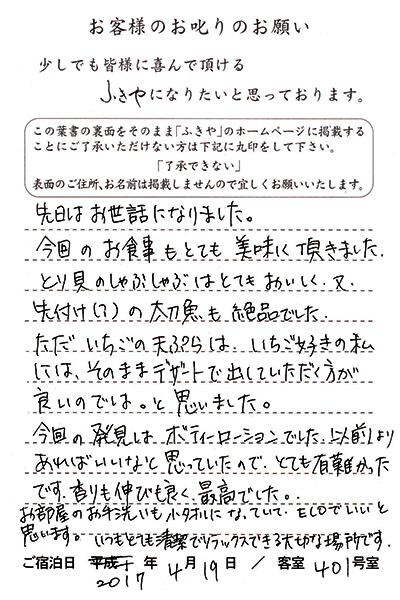 お客様のお叱りのお願い
少しでも皆様に喜んで頂ける
ふきやになりたいと思っております。
この葉書の裏面をそのまま「ふきや」のホームページに掲載する
ことにご了承いただけない方は下記に丸印をして下さい。
「了承できない」
表面のご住所、お名前は掲載しませんので宜しくお願いいたします。
先日はお世話になりました。
今回のお食事もとても美味しく頂きました。
とり貝のしゃぶしゃぶはとてもおいしく、又、
先付け(?)の太刀魚も絶品でした。
ただいちごの天ぷらは、いちご好きの私
には、そのままデザートで出していただく方が
良いのでは。と思いました。
今回の発見はボディーローションでした。以前より
あればいいなと思っていたので、とても有難かった
です。香りも伸びも良く、最高でした。
お部屋のお手洗いも小タオルになっていて、ECOでいいと
思います。いつもとても清潔でリラックスできる大切な場所です。
ご宿泊日 平成十年 4月19日 / 客室 401号室
2017